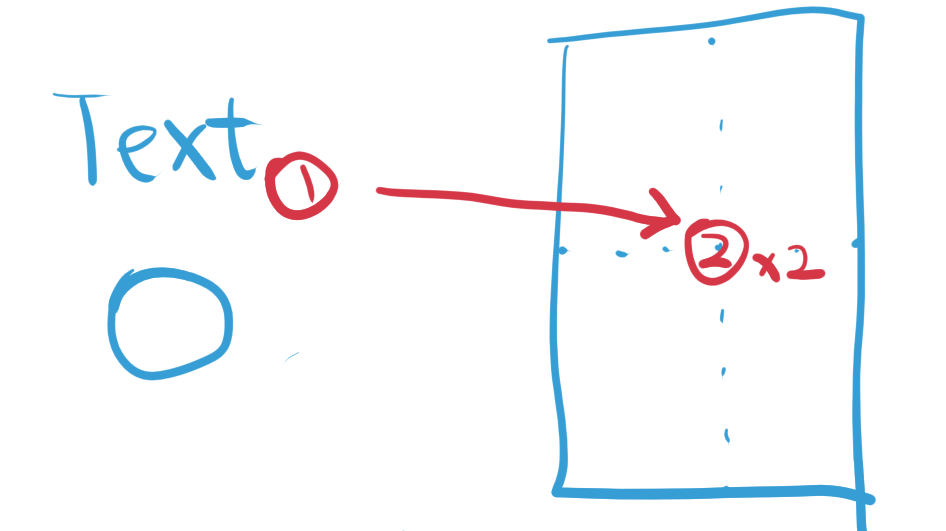 Text
①
② x2